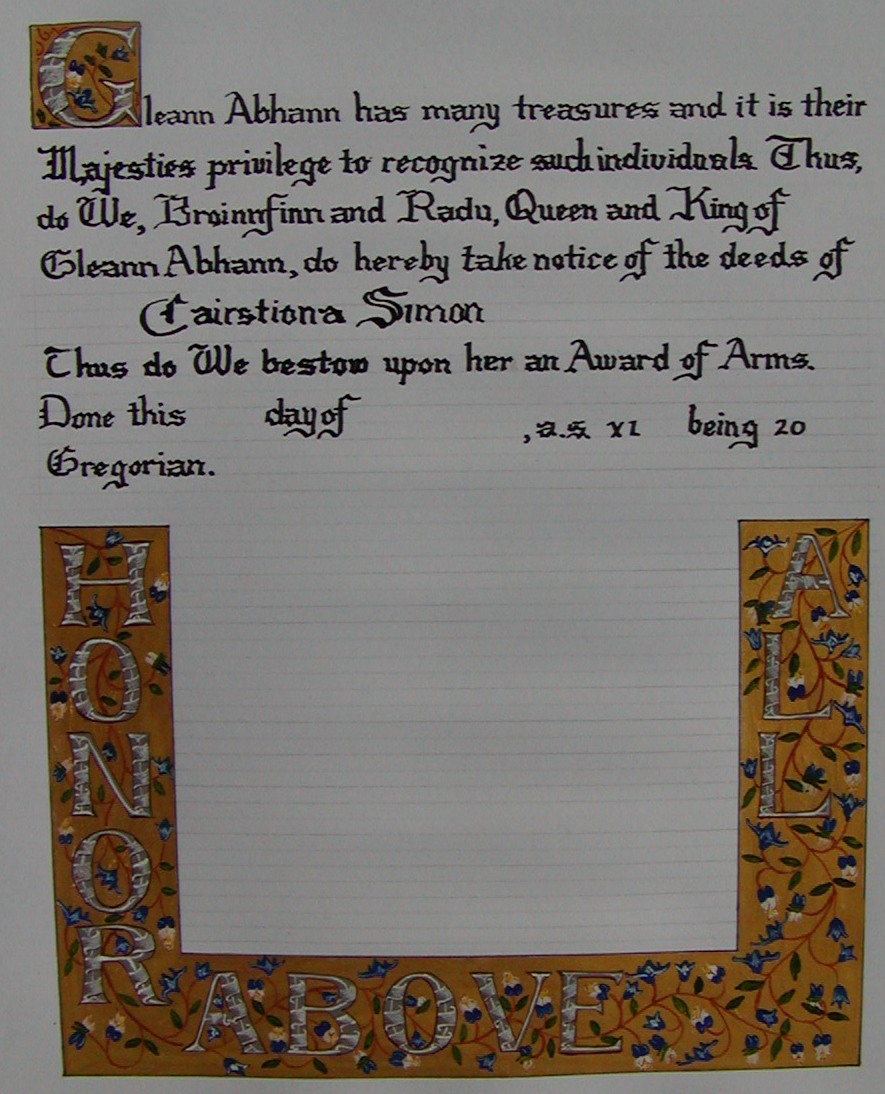 Gleann Abhann has many treasures and it is their
Majesties privilege to recognize such individuals. Thus,
do We, Broinnfinn and Radu, Queen and King of
Gleann Abhann, do hereby take notice of the deeds of
Cairstiona Simon
Thus do We bestow upon her an Award of Arms.
Done this day of , a.s. XL being 20
Gregorian.
HONOR
ABOVE
ALL